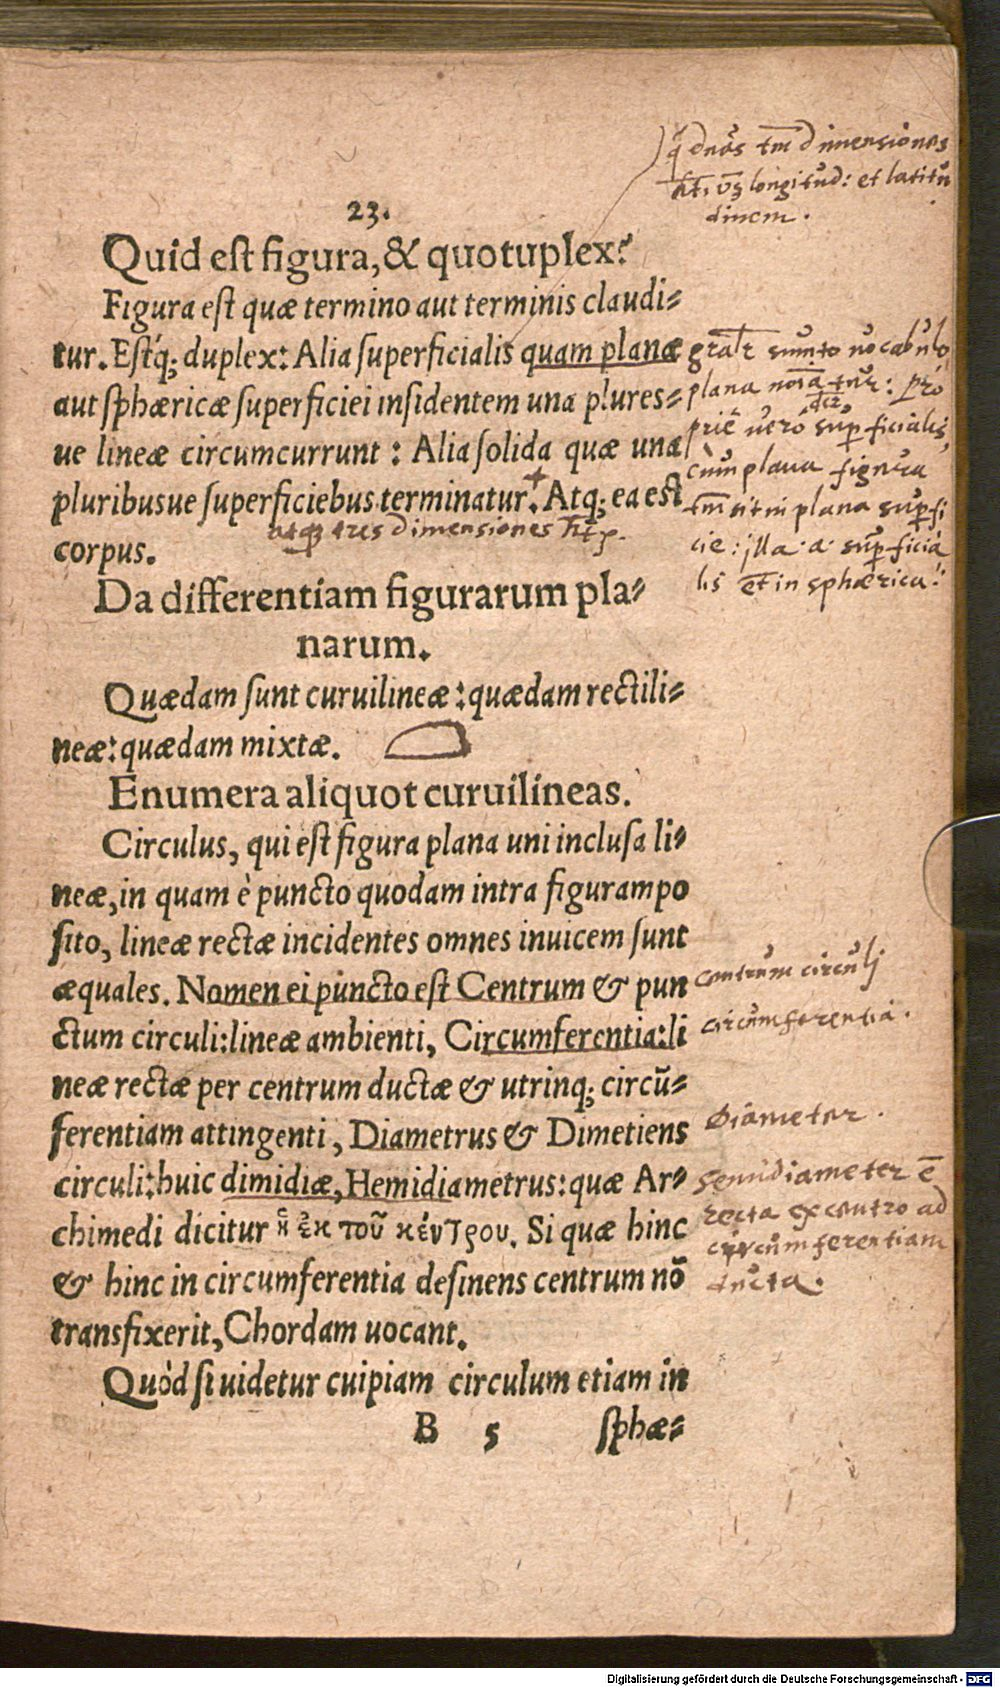 q̃ duãs tm̃ dimensiones
hñt, vz longitud: et latitu
dinem.
23.
Quid est figura, & quotuplex?
Figura est quæ termino aut terminis claudi-
tur. Estq́; duplex: Alia superficialis quam planæ
aut sphæricæ superficiei insidentem una plures-
ue lineæ circumcurrunt: Alia solida quæ una
pluribusue superficiebus terminatur. Atq; ea est
atq; tres dimensiones
corpus.
sumto uocabulo
plana
uero superficialis
cum plana figura
tm̃ sit in plana superfi
cie: illa superficia
lis et in sphærica.
Da differentiam figurarum pla-
narum.
Quædam sunt curuilineæ: quædam rectili-
neæ: quædam mixtæ.
Enumera aliquot curuilineas.
Circulus, qui est figura plana uni inclusa li-
neæ, in quam è puncto quodam intra figurampo
sito, lineæ rectæ incidentes omnes inuicem sunt
æquales. Nomen ei puncto est Centrum & pun
ctum circuli: lineæ ambienti, Circumferentia: li
neæ rectæ per centrum ductæ & utrinq; circũ-
ferentiam attingenti, Diametrus & Dimetiens
circuli: huic dimidiæ, Hemidiametrus: quæ Ar-
chimedi dicitur ἡ ἐκ τοῦ κέντρου. Si quæ hinc
& hinc in circumferentia desinens centrum nõ
transfixerit, Chordam uocant.
Quòd si uidetur cuipiam circulum etiam in
B 5 sphæ-
centrum circuli
circumferentia.
Diameter.
Semidiameter ẽ
recta ex centro ad
circumferentiam
ducta.
Digitalisierung gefördert durch die Deutsche Forschungsgemeinschaft - DFG